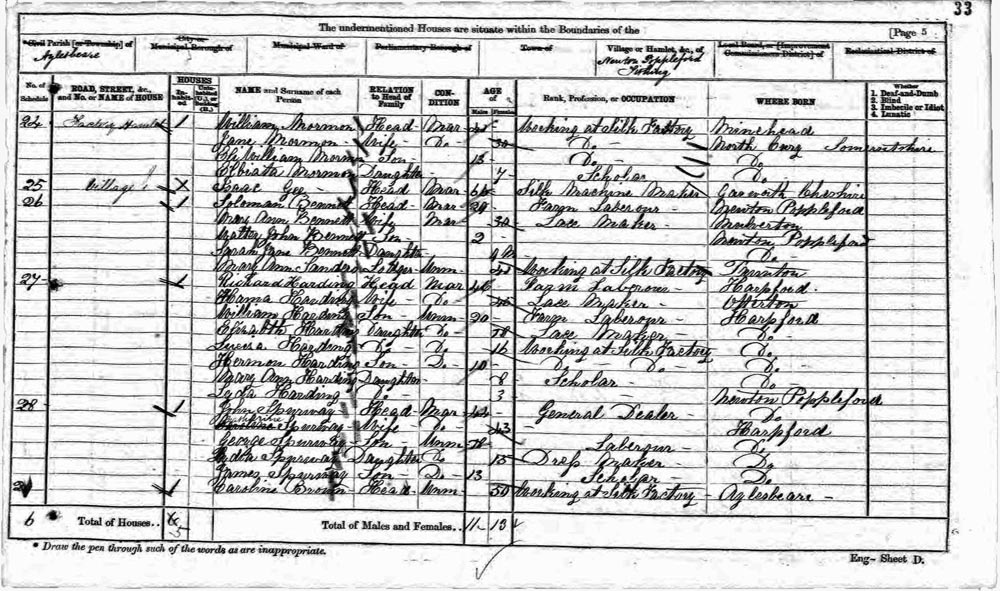 33
The undermentioned Houses are situate within the Boundaries of the [Page 5
Civil Parish [or Township] of City or Municipal Borough of Municipal Ward of Parliamentary Borough of Town of Village or Hamlet, &c., of Local Board, or [Improvement Commissioners District] of Ecclesiastical District of
Aylesbeare Newton Poppleford
No. of Schedule ROAD, STREET, &c., and No. or NAME of HOUSE HOUSES In-habit-ed Unin-habited (U.), or Building (B.) NAME and Surname of each Person RELATION to Head of Family CON-DITION AGE of Males Females Rank, Profession, or OCCUPATION WHERE BORN Whether 1. Deaf-and-Dumb 2. Blind 3. Imbecile or Idiot 4. Lunatic
24 Factory 1 William Mormon Head Mar Working at Silk Factory Minehead
Jane Mormon Wife Do North Cury Somersetshire
William Mormon Son 13 Do Do
Mormon Daughter 7 Scholar Do
25 Village Isaac Gee Head Mar 66 Silk Machine Maker Gawsworth Cheshire
26 1 Soloman Bennett Head Mar 29 Farm Laberour Newton Poppleford
Mary Ann Bennett Wife Mar 32 Lace Maker
Walter John Bennett Son 2 Newton Poppleford
Sarah Jane Bennett Daughter Do
Mary Ann Sanders Lodger Unm Working at Silk Factory Taunton
27 1 Richard Harding Head Mar 46 Farm Laberour Harpford
Harding Wife Do Lace Maker Otterton
William Harding Son Unm 20 Farm Laberour Harpford
Elizabeth Harding Daughter Do 18 Lace Maker Do
Harding Do Do 16 Working at Silk Factory Do
Hermon Harding Son Do 10 Do Do Do
Mary Ann Harding Daughter 8 Scholar Do
Lydia Harding Do 3 Newton Poppleford
28 1 John Spurway Head Mar General Dealer Do
Spurway Wife Do 43 Harpford
George Spurway Son Unm 18 Laberour Do
Spurway Daughter Do 15 Dress Maker Do
James Spurway Son Do 13 Scholar Do
Caroline Brown Head Unm 50 Working at Silk Factory Aylesbeare
6 Total of Houses.. 5 Total of Males and Females.. 11 13
* Draw the pen through such of the words as are inappropriate.
Eng- Sheet D.